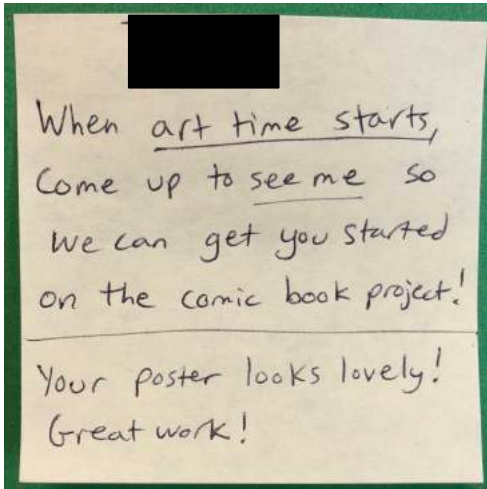 When art time starts,
Come up to see me so
we can get you started
on the comic book project!
Your poster looks lovely!
Great work!